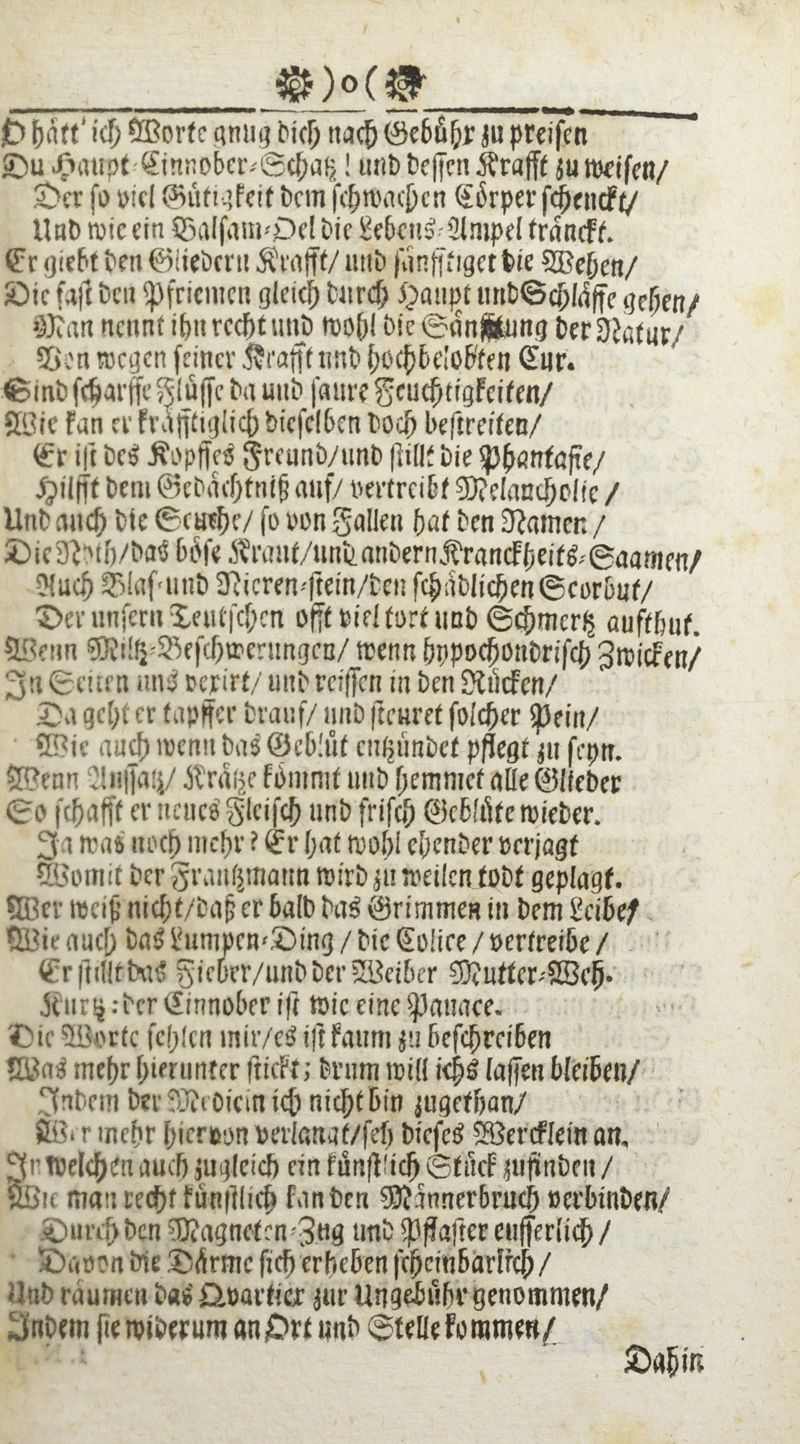 )o(
O hätt' ich Worte gnug dich nach Gebühr zu preisen
Du Haupt-Cinnober-Schatz! und dessen Krafft zu weisen/
Der so viel Gütigkeit dem schwachen Cörper schenckt/
Und wie ein Balsam-Oel die Lebens-Ampel tränckt.
Er giebt den Gliedern Krafft/ und sänfftiget die Wehen/
Die fast den Pfriemen gleich durch Haupt und Schläffe gehen/
Man nennt ihn recht und wohl die Sänfftung der Natur/
Von wegen seiner Krafft und hochbelobten Cur.
Sind scharffe Flüsse da und saure Feuchtigkeiten/
Wie kan er kräfftiglich dieselben doch bestreiten/
Er ist des Kopffes Freund/und stillt die Phantasie/
Hilfft dem Gedächtniß auf/ vertreibt Melancholie /
Und auch die Seuche/ so von Fallen hat den Namen /
Die Röth/das böse Kraut/und andern Kranckheits-Saamen/
Auch Blas-und Nieren-stein/den schädlichen Scorbut/
Der unsern Teutschen offt viel tort und Schmertz aufthut.
Wenn Miltz-Beschwerungen/ wenn hypochondrisch Zwicken/
In Seiten uns vexirt/ und reissen in den Rücken/
Da geht er tapffer drauf/ und steuret solcher Pein/
Wie auch wenn das Geblüt entzündet pflegt zu seyn.
Wenn Aussatz/ Krätze kömmt und hemmet alle Glieder
So schafft er neues Fleisch und frisch Geblüte wieder.
Ja was noch mehr? Er hat wohl ehender verjagt
Womit der Frantzmann wird zu weilen todt geplagt.
Wer weiß nicht/daß er bald das Grimmen in dem Leibe/
Wie auch das Lumpen-Ding / die Colice / vertreibe /
Er stillt das Fieber/und der Weiber Mutter-Weh.
Kurtz: der Cinnober ist wie eine Panace.
Die Worte fehlen mir/es ist kaum zu beschreiben
Was mehr hierunter stickt; drum will ichs lassen bleiben/
Indem der Medicin ich nicht bin zugethan/
Wer mehr hiervon verlangt/seh dieses Wercklein an,
In welchen auch zugleich ein künstlich Stück zufinden /
Wie man recht künstlich kan den Männerbruch verbinden/
Durch den Magneten-Zug und Pflaster eusserlich /
Davon die Därme sich erheben scheinbarlich /
Und räumen das Qvartier zur Ungebühr genommen/
Indem sie widerum an Ort und Stelle kommen/
Dahin